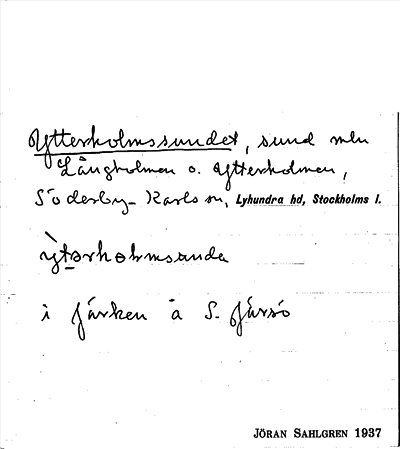 Ytterholmssundet, sund mln
Långholmen o. Ytterholmen,
Söderby-Karls sn, Lyhundra hd, Stockholms l.
ỳtərhəlmsundə
i Järken å S. Järsö
JÖRAN SAHLGREN 1937